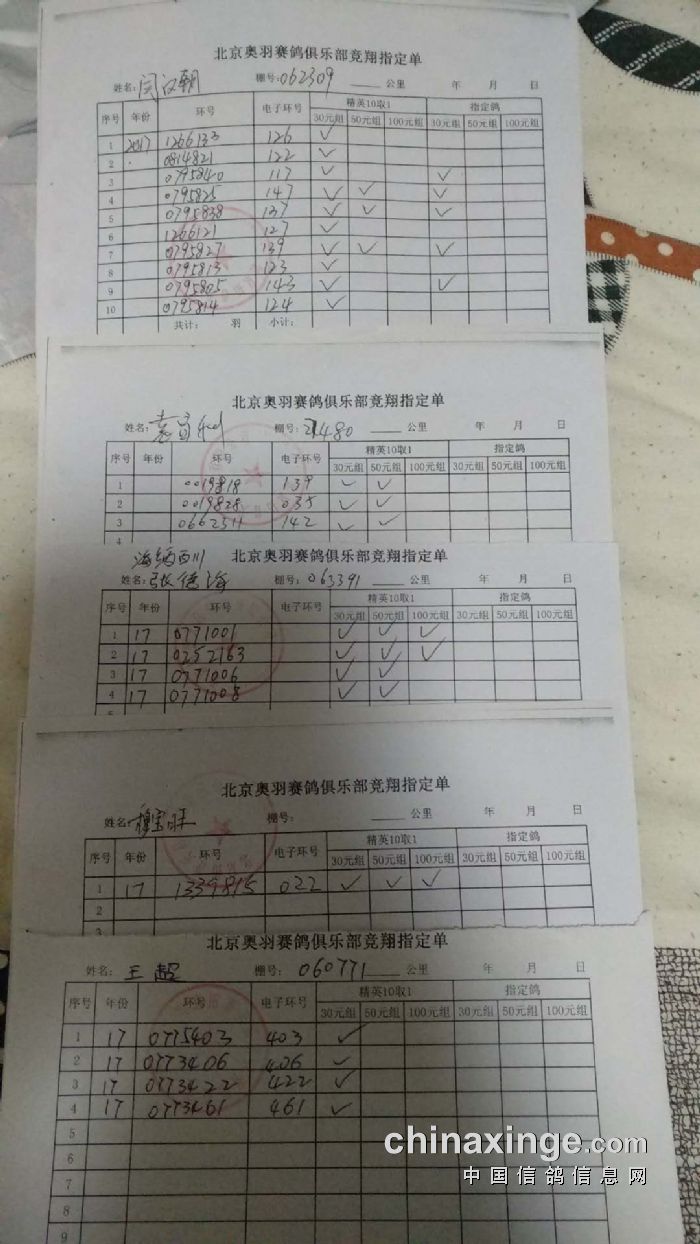 北京奥羽赛鸽俱乐部竞翔指定单
姓名: 闫汉朝 棚号: 062309 公里 年 月 日
序号 年份 环号 电子环号 精英10取1 指定鸽
30元组 50元组 100元组 30元组 50元组 100元组
1 2017 1266133 126 ✓
2 0814821 122 ✓
3 0795840 117 ✓ ✓
4 0795825 147 ✓ ✓ ✓
5 0795838 137 ✓ ✓ ✓
6 1266121 127 ✓
7 0795827 139 ✓ ✓ ✓
8 0795813 123 ✓
9 0795805 143 ✓ ✓
10 0795814 124 ✓
共计: 羽 小计:
北京奥羽赛鸽俱乐部竞翔指定单
姓名: 棚号: 21480 公里 年 月 日
序号 年份 环号 电子环号 精英10取1 指定鸽
30元组 50元组 100元组 30元组 50元组 100元组
1 0019818 139 ✓ ✓
2 0019828 035 ✓ ✓
3 0662511 142 ✓ ✓
海纳百川 北京奥羽赛鸽俱乐部竞翔指定单
姓名: 张德海 棚号: 063391 公里 年 月 日
序号 年份 环号 电子环号 精英10取1 指定鸽
30元组 50元组 100元组 30元组 50元组 100元组
1 17 0771001 ✓ ✓ ✓
2 17 0252163 ✓ ✓ ✓
3 17 0771006 ✓ ✓
4 17 0771008 ✓ ✓
北京奥羽赛鸽俱乐部竞翔指定单
姓名: 穆宝旺 棚号: 公里 年 月 日
序号 年份 环号 电子环号 精英10取1 指定鸽
30元组 50元组 100元组 30元组 50元组 100元组
1 17 1339815 022 ✓ ✓ ✓
2
3
北京奥羽赛鸽俱乐部竞翔指定单
姓名: 王超 棚号: 060771 公里 年 月 日
序号 年份 环号 电子环号 精英10取1 指定鸽
30元组 50元组 100元组 30元组 50元组 100元组
1 17 0775403 403 ✓
2 17 0773406 406 ✓
3 17 0773422 422 ✓
4 17 0773461 461 ✓
5
6
7
8
9
chinaxinge.com
中国信鸽信息网